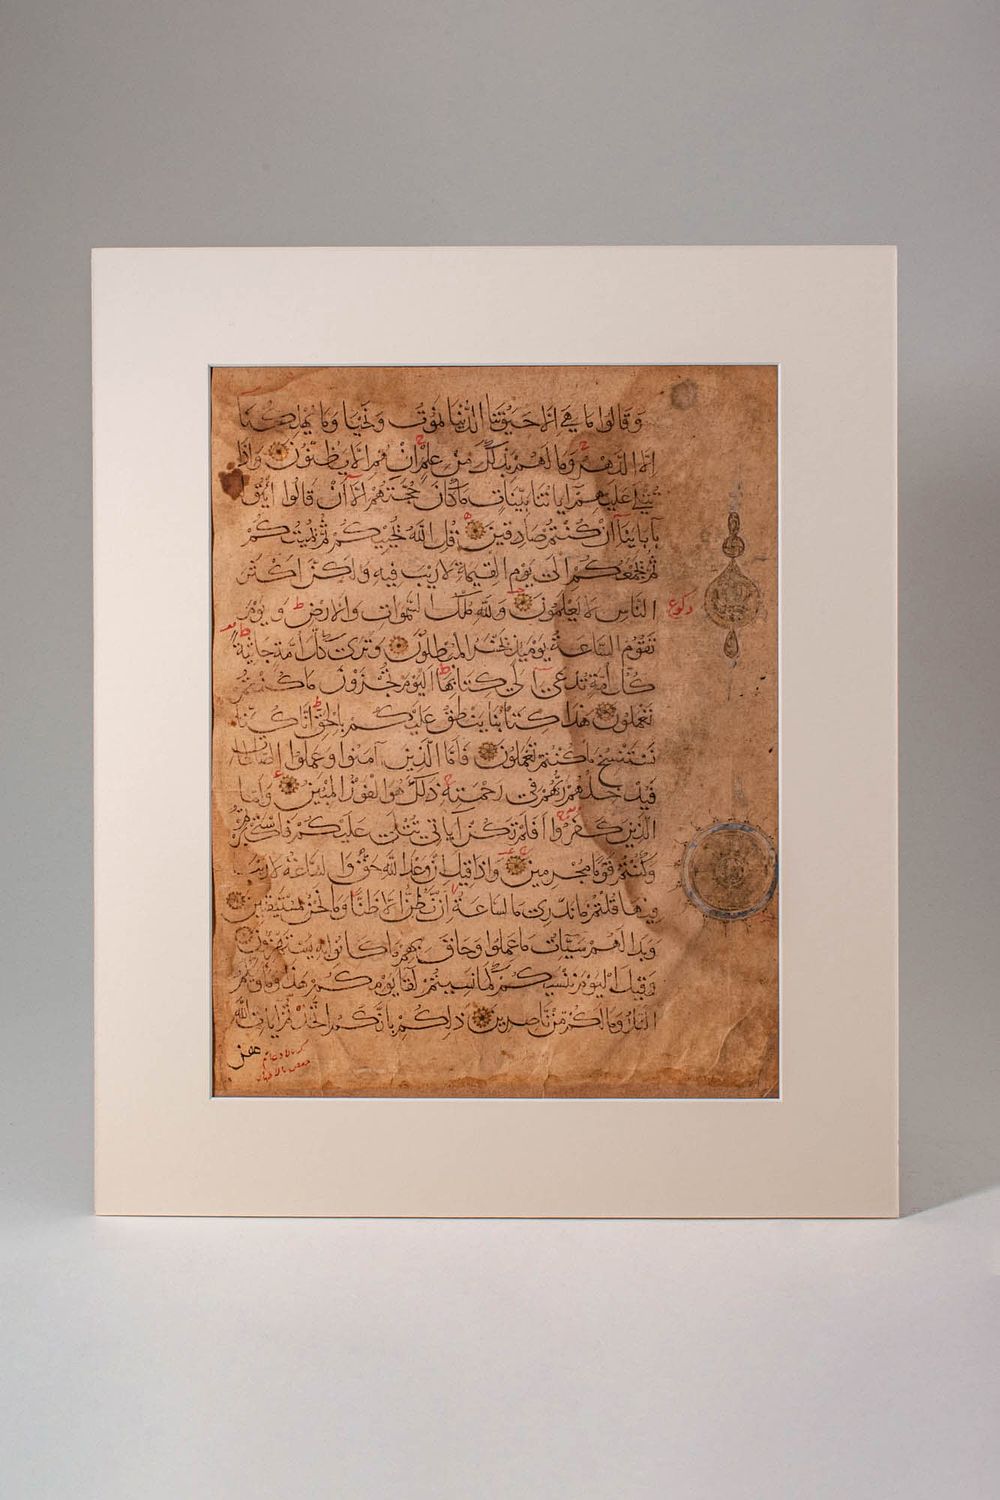 وَقَالُوا مَا هِيَ إِلَّا حَيٰوتُنَا الدُّنْيَا نَمُوتُ وَنَحْيَا وَمَا يُهْلِكُنَا
إِلَّا الدَّهْرُ وَمَا لَهُمْ بِذٰلِكَ مِنْ عِلْمٍ إِنْ هُمْ إِلَّا يَظُنُّونَ وَإِذَا
تُتْلَى عَلَيْهِمْ آيَاتُنَا بَيِّنَاتٍ مَا كَانَ حُجَّتَهُمْ إِلَّا أَنْ قَالُوا ائْتُوا
بِآبَائِنَا إِنْ كُنْتُمْ صَادِقِينَ قُلِ اللّٰهُ يُحْيِيكُمْ ثُمَّ يُمِيتُكُمْ
ثُمَّ يَجْمَعُكُمْ إِلَى يَوْمِ الْقِيٰمَةِ لَا رَيْبَ فِيهِ وَلٰكِنَّ أَكْثَرَ
النَّاسِ لَا يَعْلَمُونَ وَلِلّٰهِ مُلْكُ السَّمٰوَاتِ وَالْأَرْضِ وَيَوْمَ
ركوع
تَقُومُ السَّاعَةُ يَوْمَئِذٍ يَخْسَرُ الْمُبْطِلُونَ وَتَرَى كُلَّ أُمَّةٍ جَاثِيَةً
كُلُّ أُمَّةٍ تُدْعَى إِلَى كِتَابِهَا الْيَوْمَ تُجْزَوْنَ مَا كُنْتُمْ
تَعْمَلُونَ هٰذَا كِتَابُنَا يَنْطِقُ عَلَيْكُمْ بِالْحَقِّ إِنَّا كُنَّا
نَسْتَنْسِخُ مَا كُنْتُمْ تَعْمَلُونَ فَأَمَّا الَّذِينَ آمَنُوا وَعَمِلُوا الصَّالِحَاتِ
فَيُدْخِلُهُمْ رَبُّهُمْ فِي رَحْمَتِهِ ذٰلِكَ هُوَ الْفَوْزُ الْمُبِينُ وَأَمَّا
الَّذِينَ كَفَرُوا أَفَلَمْ تَكُنْ آيَاتِي تُتْلَى عَلَيْكُمْ فَاسْتَكْبَرْتُمْ
وَكُنْتُمْ قَوْمًا مُجْرِمِينَ وَإِذَا قِيلَ إِنَّ وَعْدَ اللّٰهِ حَقٌّ وَالسَّاعَةُ لَا رَيْبَ
فِيهَا قُلْتُمْ مَا نَدْرِي مَا السَّاعَةُ إِنْ نَظُنُّ إِلَّا ظَنًّا وَمَا نَحْنُ بِمُسْتَيْقِنِينَ
وَبَدَا لَهُمْ سَيِّئَاتُ مَا عَمِلُوا وَحَاقَ بِهِمْ مَا كَانُوا بِهِ يَسْتَهْزِئُونَ
وَقِيلَ الْيَوْمَ نَنْسٰيكُمْ كَمَا نَسِيتُمْ لِقَاءَ يَوْمِكُمْ هٰذَا وَمَأْوٰيكُمُ
النَّارُ وَمَا لَكُمْ مِنْ نَاصِرِينَ ذٰلِكُمْ بِأَنَّكُمُ اتَّخَذْتُمْ آيَاتِ اللّٰهِ